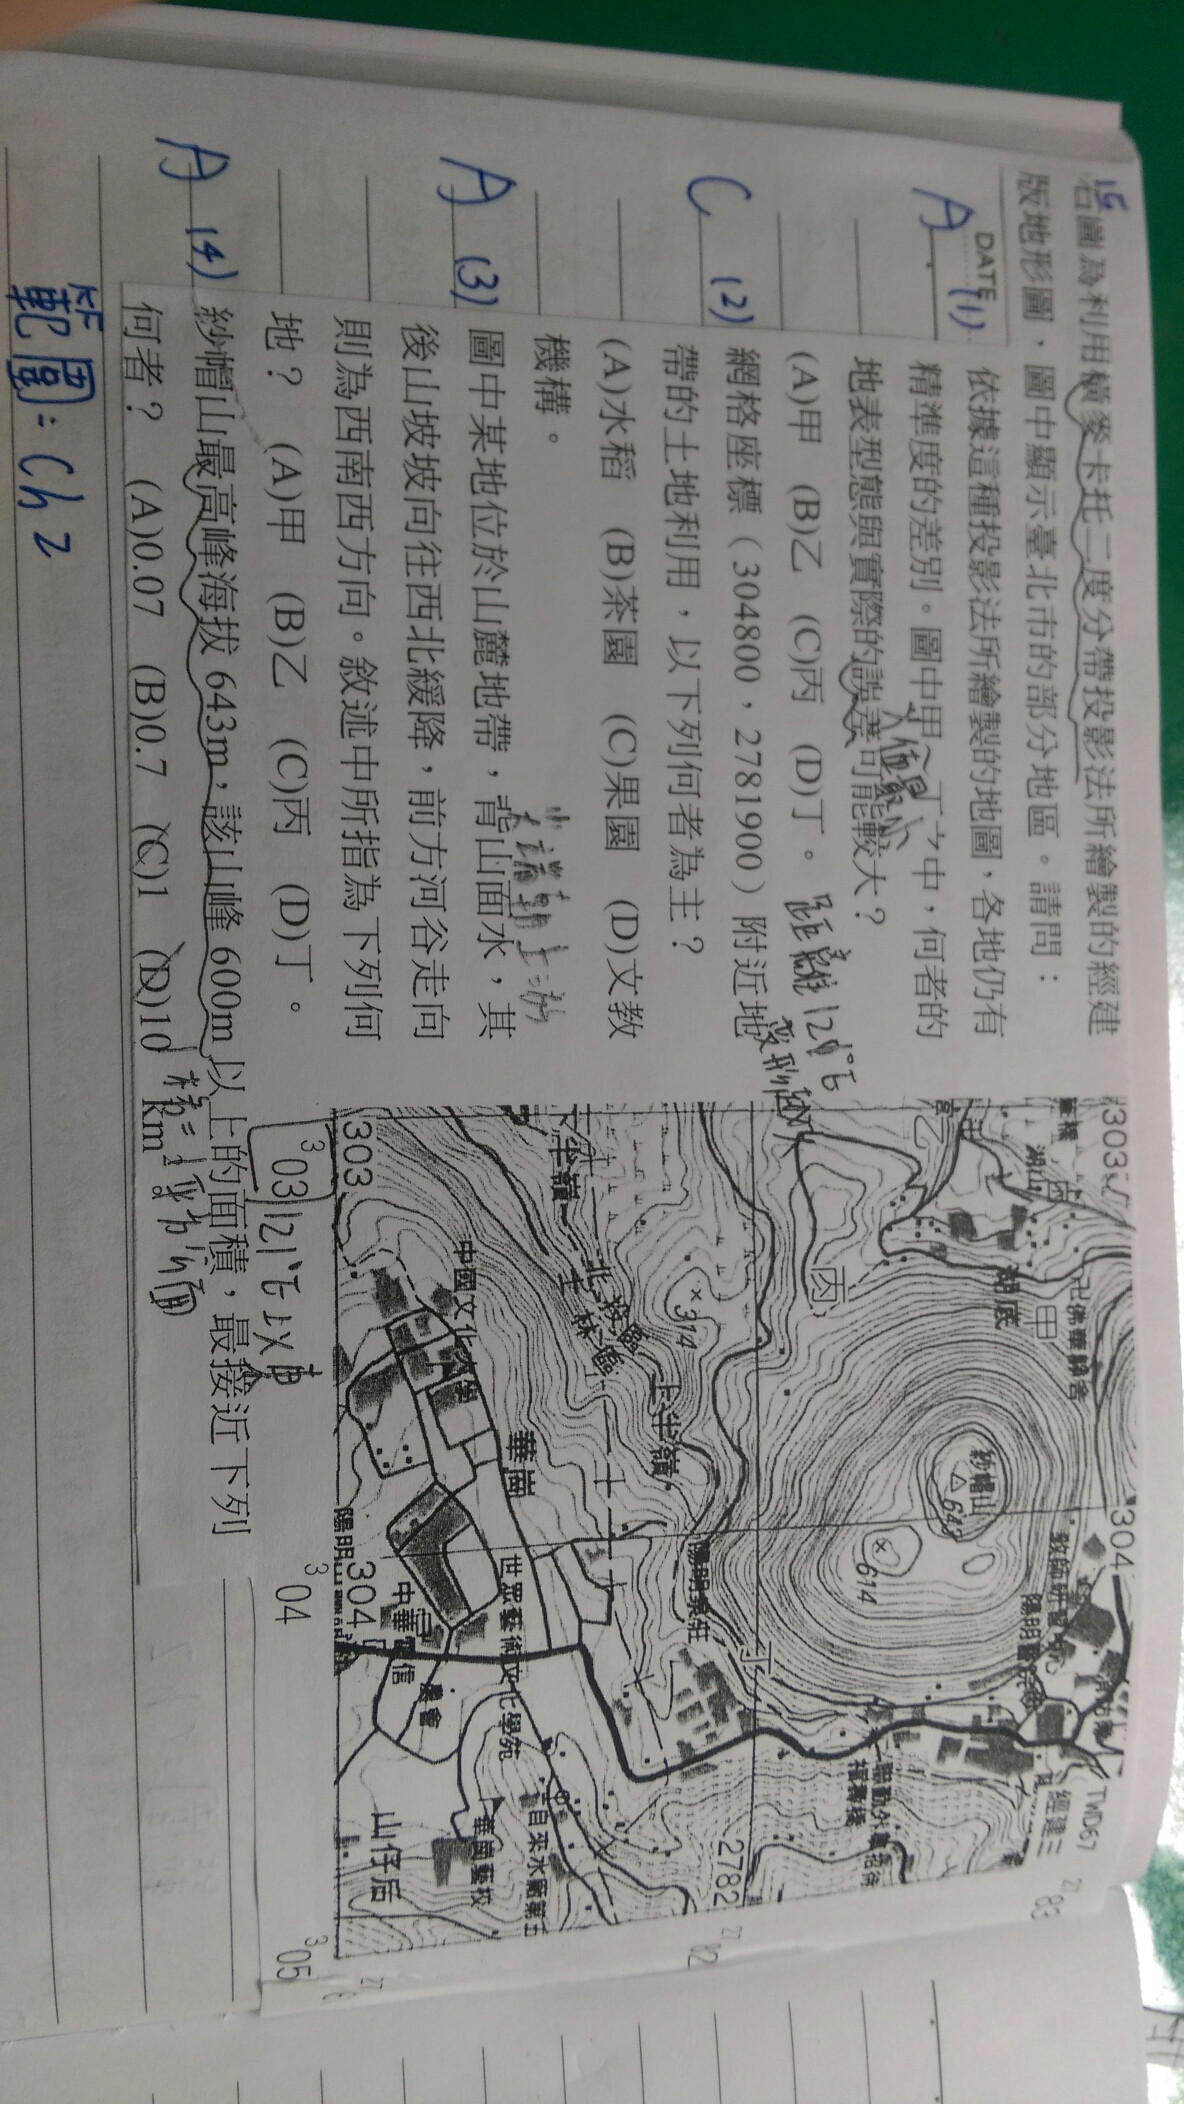 15
右圖為利用橫麥卡托二度分帶投影法所繪製的經建
版地形圖，圖中顯示臺北市的部分地區。請問：
DATE
A (1) 依據這種投影法所繪製的地圖，各地仍有
精準度的差別。圖中甲～丁之中，何者的
地表型態與實際的誤差可能較大？
(A)甲 (B)乙 (C)丙 (D)丁。
距離121°E
C (2) 網格座標（304800，2781900）附近地
帶的土地利用，以下列何者為主？
(A)水稻 (B)茶園 (C)果園 (D)文教
機構。
A (3) 圖中某地位於山麓地帶，背山面水，其
後山坡坡向往西北緩降，前方河谷走向
則為西南西方向。敘述中所指為下列何
地？ (A)甲 (B)乙 (C)丙 (D)丁。
A (4) 紗帽山最高峰海拔 643m，該山峰 600m 以上的面積，最接近下列
何者？ (A)0.07 (B)0.7 (C)1 (D)10
km
範圍：ch 2
303
湖山
湖底
甲
佛華精舍
304
教師研習中心
陽明
TWD67
經建三
27
83
乙
丙
紗帽山
643
614
丁
2782
27
82
×314
北投區
士林區
上半嶺
下半嶺
陽明美莊
中國文化大學
華岡
世界藝術文化學苑
中華
農會
自來水廠第五
華岡藝校
山仔后
303
陽明
304
3 03
121°E以東
3 04
3 05
27